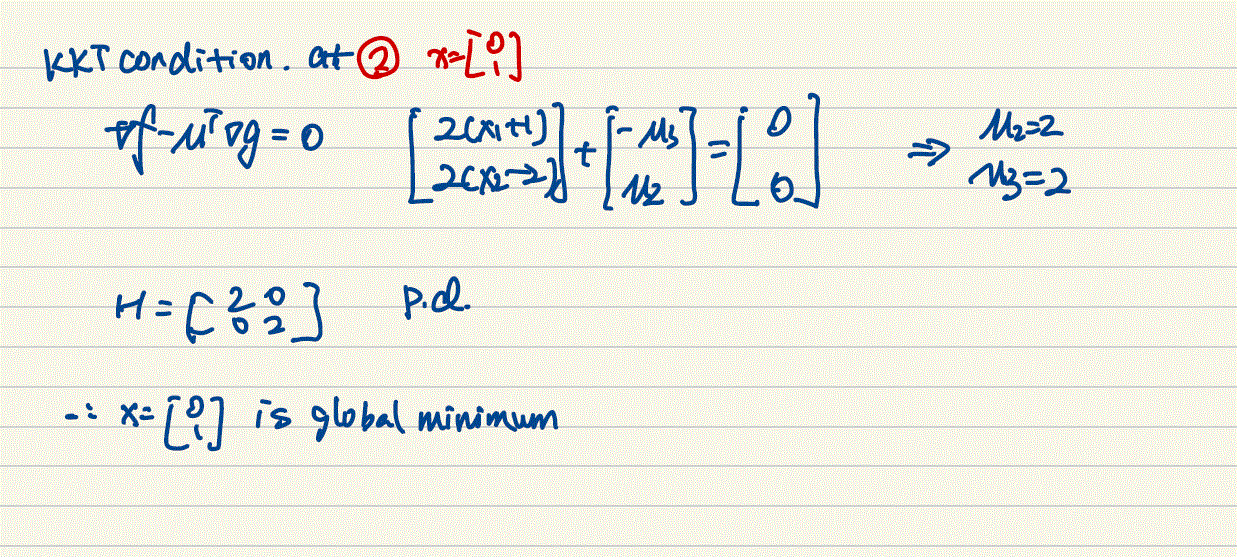 KKT condition. at ② x=[0 1]
∇f-μᵀ∇g=0 [2(x₁+1) 2(x₂-2)]+[-μ₃ μ₂]=[0 0] ⇒ μ₂=2 μ₃=2
H=[2 0 0 2] p.d.
∴ x=[0 1] is global minimum